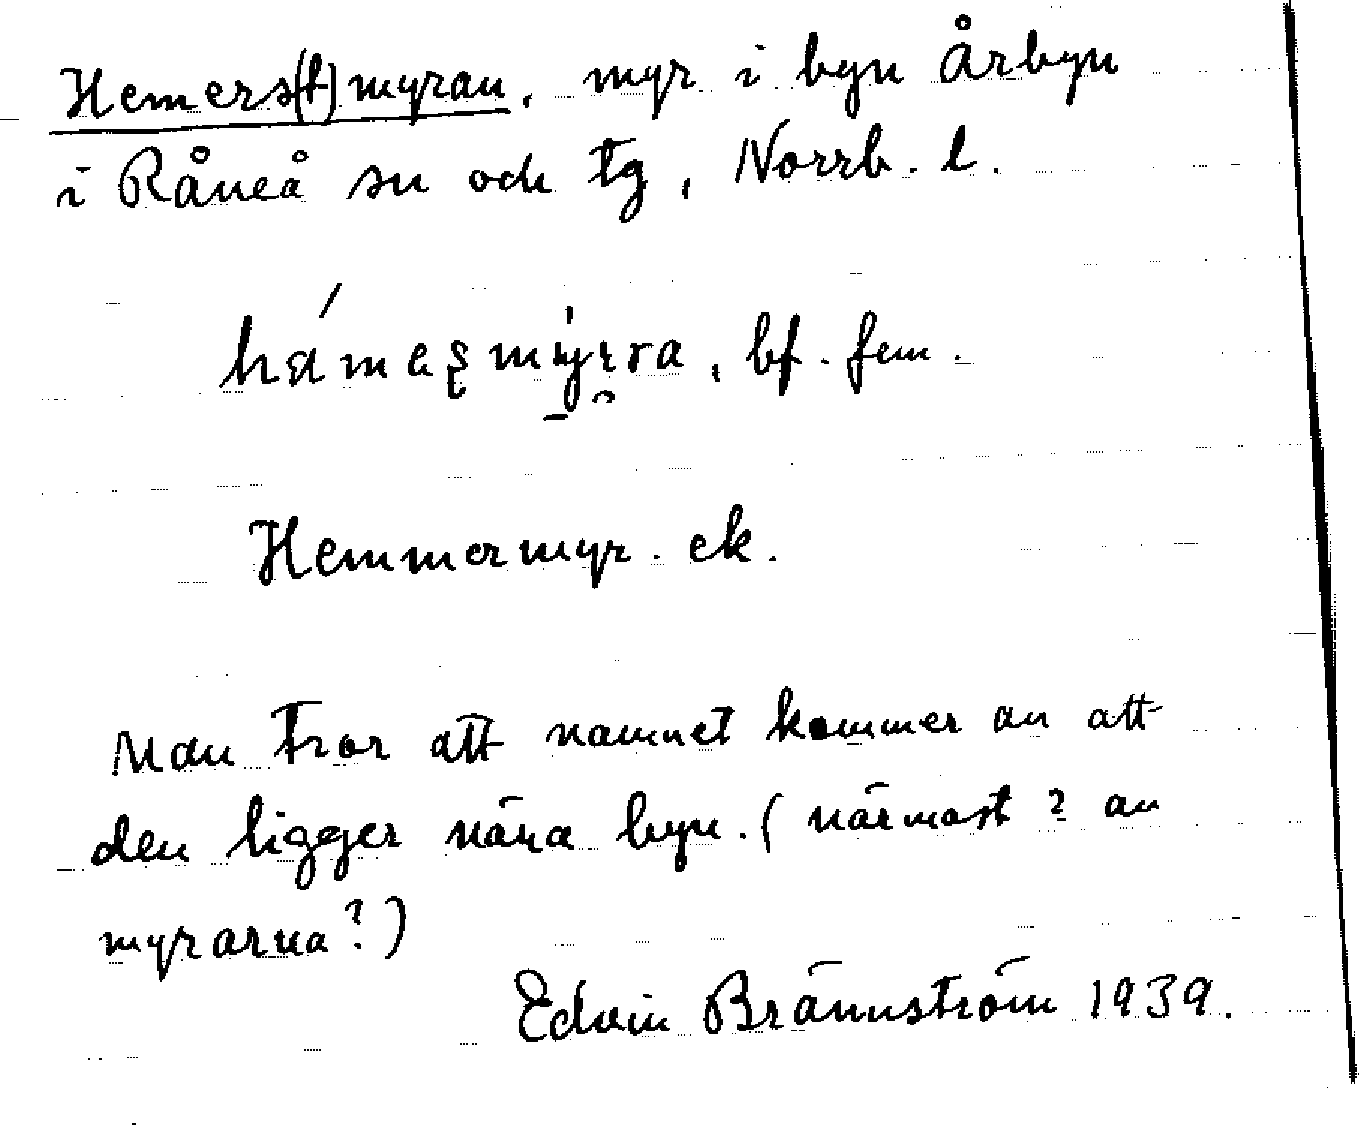 Hemers(t)myran, myr i byn Årbyn
i Råneå sn och tg, Norrb. l.
bf. fem.
Hemmermyr. ek.
Man tror att namnet kommer av att
den ligger nära byn. (närmast? av
myrarna?)
Edvin Brännström 1939.